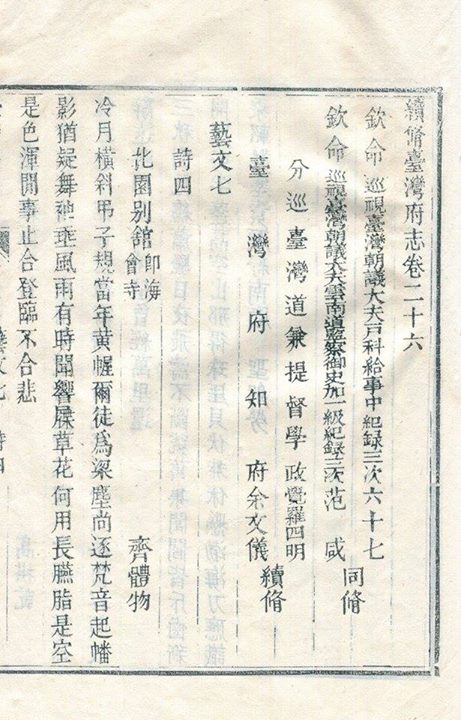 續脩臺灣府志卷二十六
欽命巡視臺灣朝議大夫戶科給事中紀錄三次六十七
欽命巡視臺灣朝議大夫雲南道監察御史加一級紀錄三次范咸
同脩
分巡臺灣道兼提督學政覺羅四明
臺灣府知府余文儀
續脩
藝文七
詩四
北園別舘即海會寺
齊體物
冷月橫斜弔子規當年黃幄爾徒爲梁塵尚逐梵音起幡
影猶疑舞袖垂風雨有時聞響屧草花何用長臙脂是空
是色渾閒事止合登臨不合悲